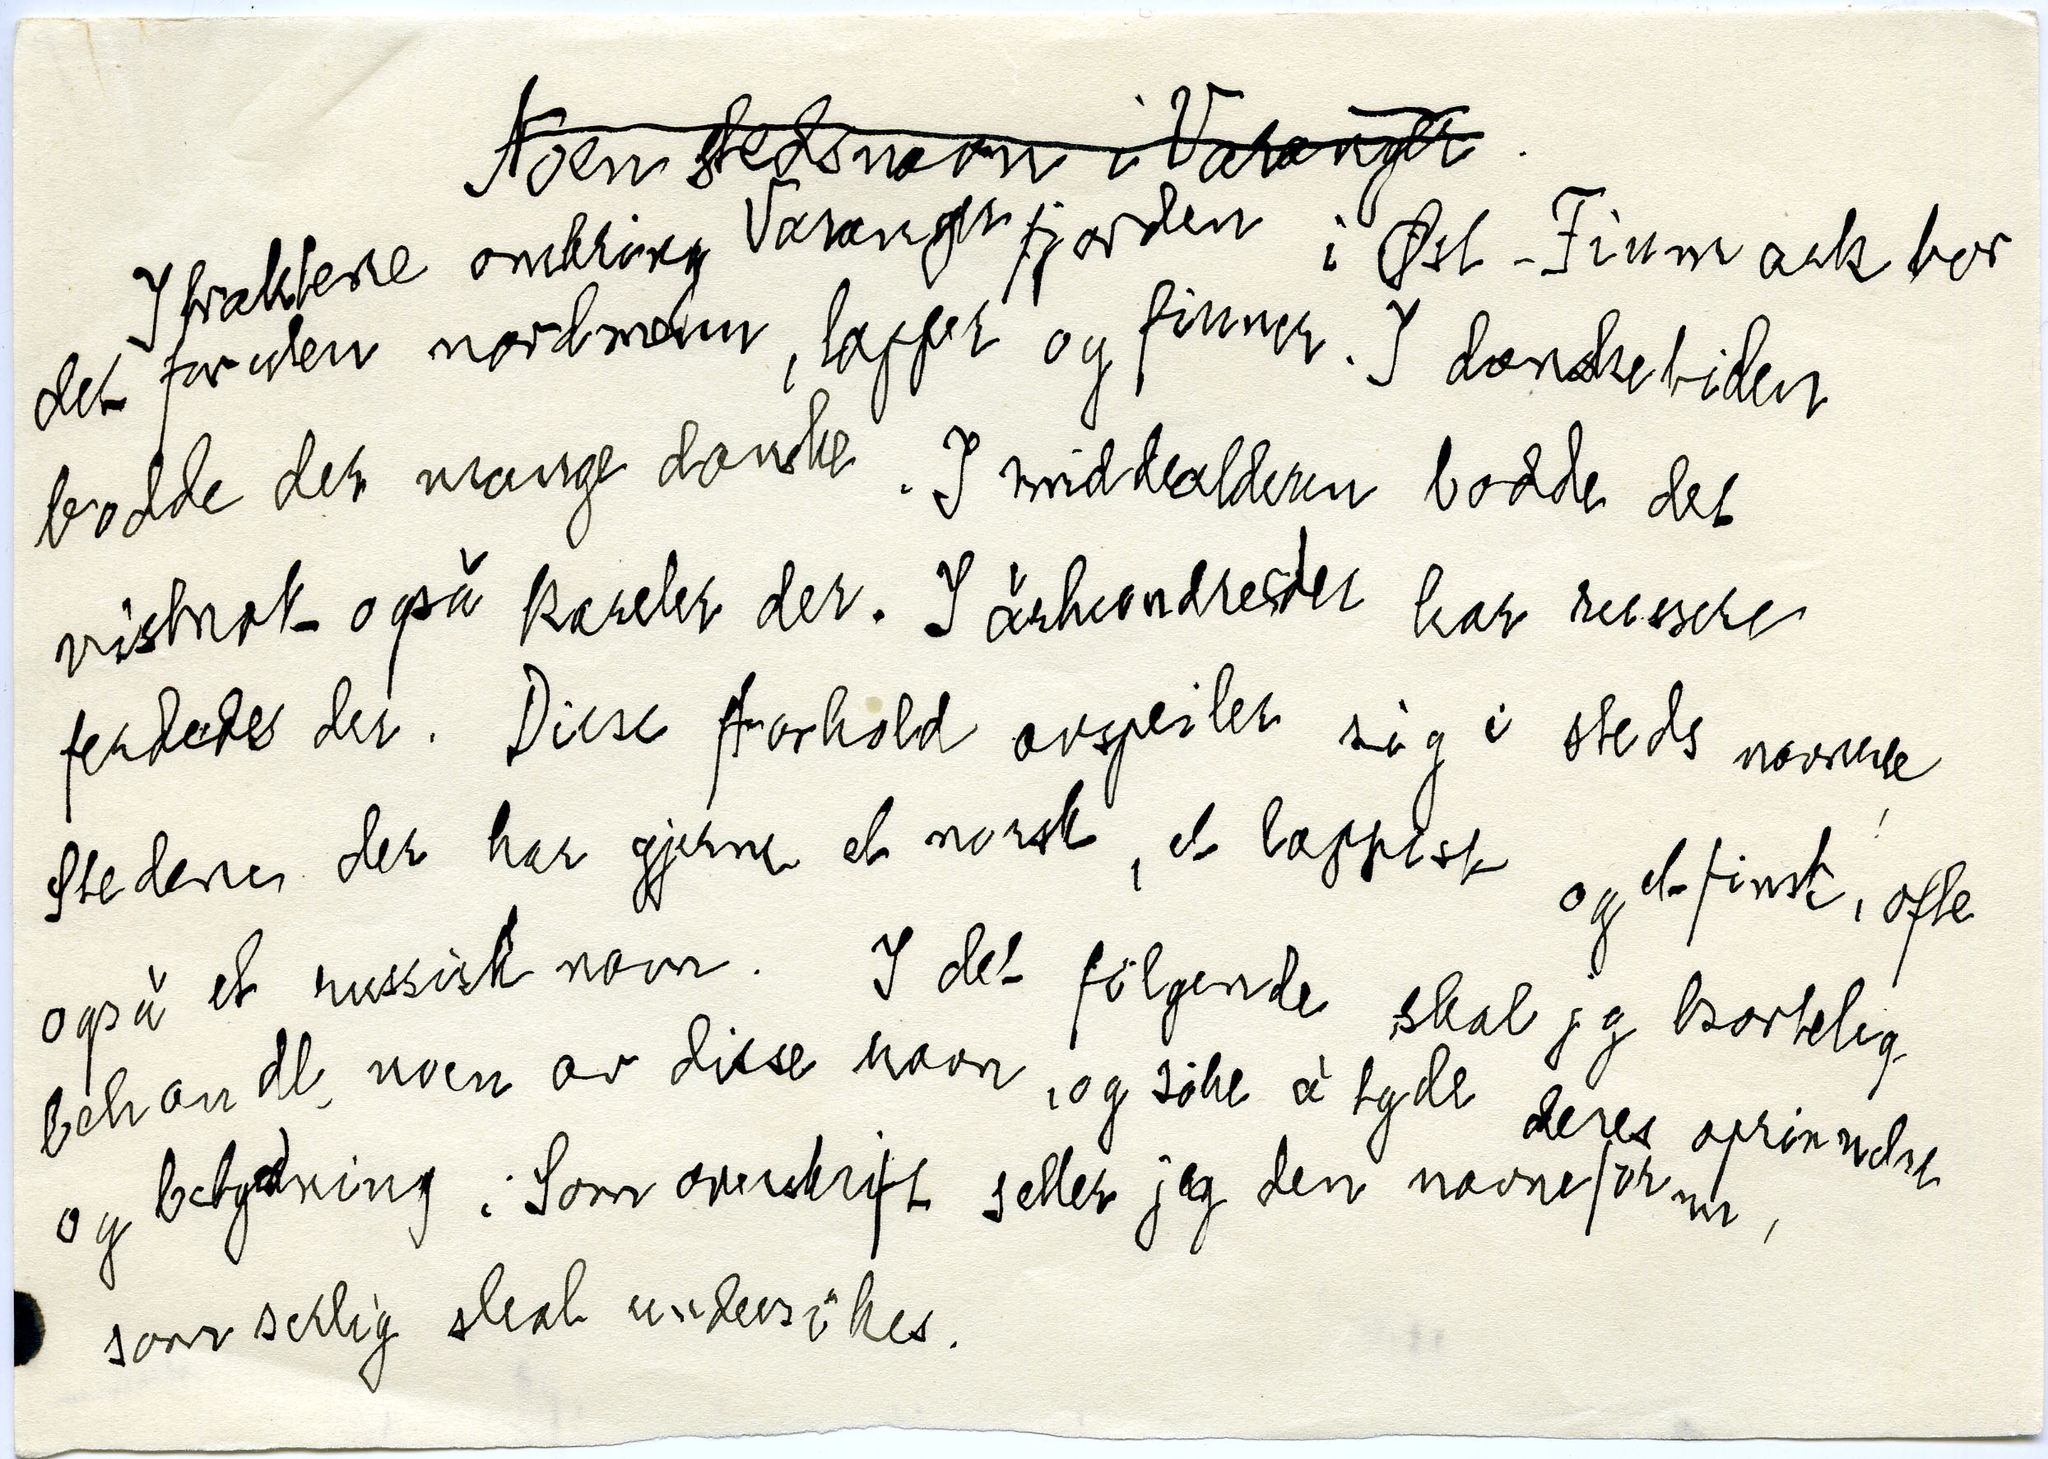 Noen stedsnavn i Varanger.
I traktene omkring Varangerfjorden i Øst-Finmark bor
det foruten nordmenn, lapper og finner. I dansketiden
bodde der mange danske. I middelalderen bodde det
vistnok også kareler der. I århundreder har russere
ferdedes der. Disse forhold avspeiler sig i stedsnavnene,
stedene der har gjerne et norsk, et lappisk og et finsk, ofte
også et russisk navn. I det følgende skal jeg kortelig
behandle noen av disse navn, og søke å tyde deres oprinnelse
og betydning. Som overskrift setter jeg den navneform,
som serlig skal undersøkes.